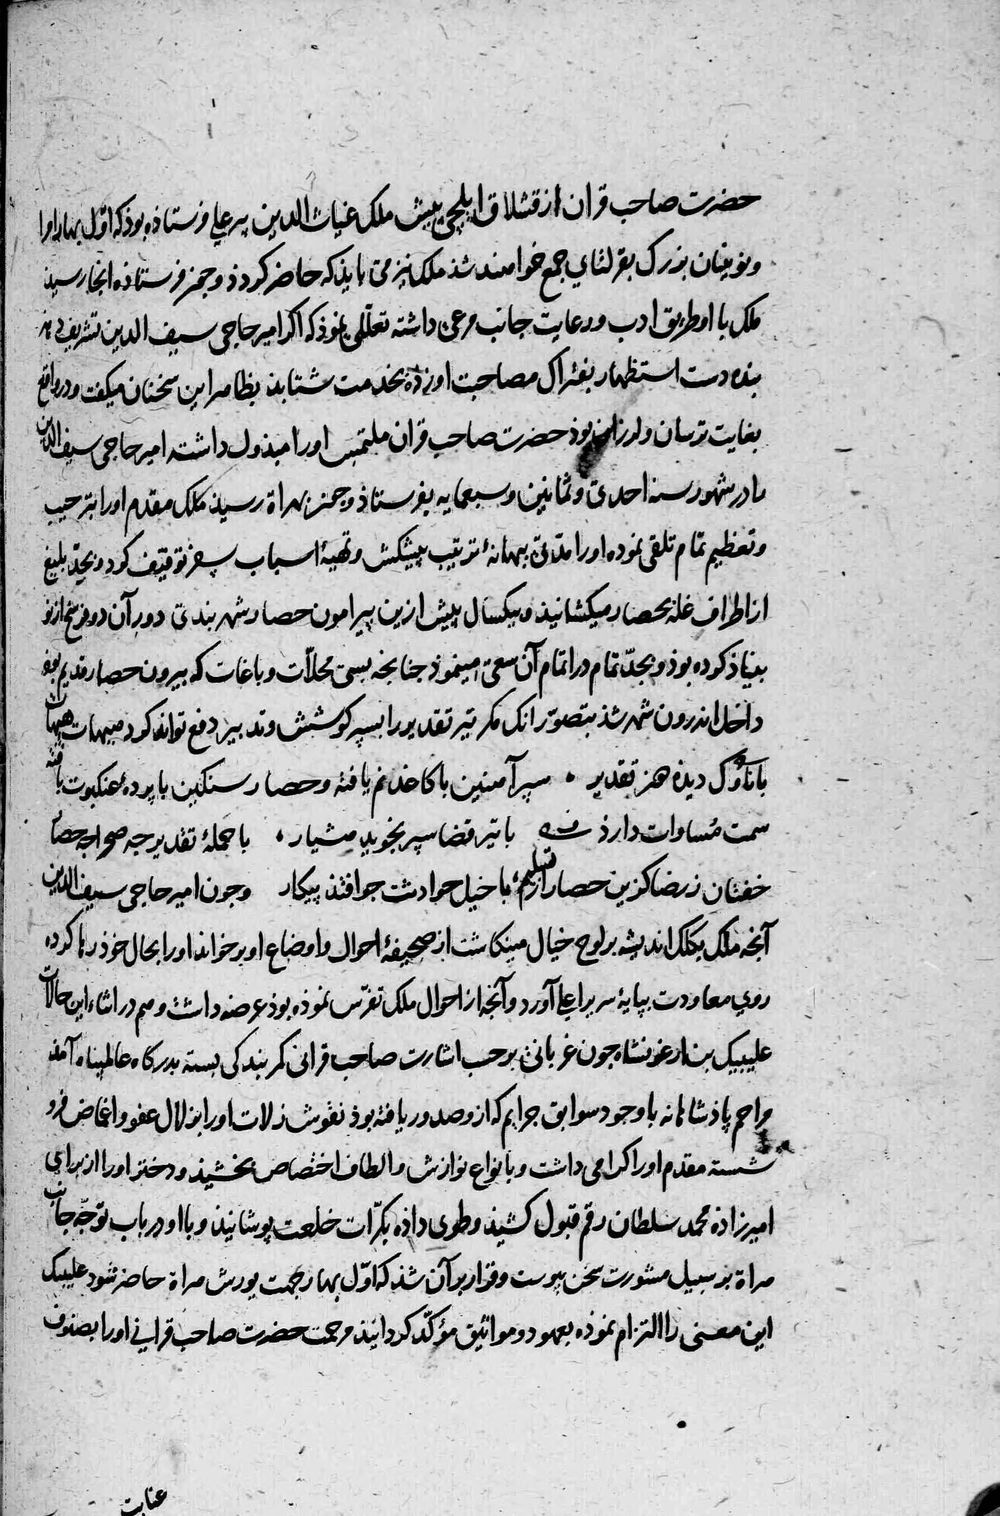 حضرت صاحب قران از قشلاق ایلچی پیش ملک غیاث الدین پیر علی فرستاذه بوذ که اول بهار امرا
و نوینان بزرک بقرلتای جمع خواهند شذ ملک نیز می بایذ که حاضر کردذ و جمعی فرستاذه انجا رسید
ملک با او طریق ادب و رعایت جانب مرعی داشته تعللی نموذ که اکر امیر حاجی سیف الدین تشریف دهذ
بنده دست استظهار بفتراک مصاحبت او زده بخدمت شتابذ بظاهر این سخنان میکفت و در واقع
بغایت ترسان و لرزان بوذ حضرت صاحب قران ملتمس او را مبذول داشته امیر حاجی سیف الدین
را در شهور سنه احدی و ثمانین و سبعمایه بفرستاذ و جمعی بهراة رسیذ ملک مقدم او را بترحیب
و تعظیم تمام تلقی نموده او را مدتی ببهانهٔ ترتیب پیشکش و تهیهٔ اسباب سفر توقیف کرد و بجد بلیغ
از اطراف غله بحصار میکشانیذ و یکسال پیش ازین پیرامون حصار شهر بندی دور آن دو فرسخ از نو
بنیاذ کرده بوذ و بجد تمام در اتمام آن سعی مینموذ چنانچه بسی محلات و باغات که بیرون حصار قدیم بوذ
داخل اندرون شهر شذ بتصور انک مکر تیر تقدیر را بسپر کوشش و تدبیر دفع تواند کرد هیهات هیهات
با ناوک دیده هنر تقدیر • سپر آهنین با کاغذ نم یافته و حصار سنکین با پردهٔ عنکبوت بافته
سمت مساوات دارذ با تیر قضا سپر بخوید مشیار • با حملهٔ تقدیر چه صحرا چه حصا
خفتان ز رضا کزین حصار از تسلیم با خیل حوادثت چو افتذ پیکار و چون امیر حاجی سیف الدین
آنچه ملک بکلک اندیشه بر لوح خیال مینکاشت از صحیفهٔ احوال و اوضاع او بر خواند او را بحال خوذ رها کرده
روی معاودت بپایهٔ سریر اعلی آورد و آنچه از احوال ملک تفرس نموذه بوذ عرضه داشت و هم در اثناء این حالات
علیبیک بن ارغونشاه جون غربانی بر حسب اشارت صاحب قرانی کمر بندکی بسته بدرکاه عالمپناه آمد
مراحم پاذشاهانه با وجود سوابق جرایم که از و صدور یافته بوذ نقوش زلات او را بزلال عفو و اغماض فرو
شسته مقدم او را کرامی داشت و بانواع نوازش و الطاف اختصاص بخشیذ و دختر او را از برای
امیرزاذه محمد سلطان رقم قبول کشیذ و طوی داذه بکرات خلعت پوشانیذ و با او در باب توجه جانب
هراة بر سبیل مشورت سخن پیوست و قرار بر آن شذ که اول بهار جهت یورش هراة حاضر شود علیبیک
این معنی را التزام نموذه بعهود و مواثیق مؤکد کردانیذ مرحمت حضرت صاحب قرانی او را بصنوف
عنایت